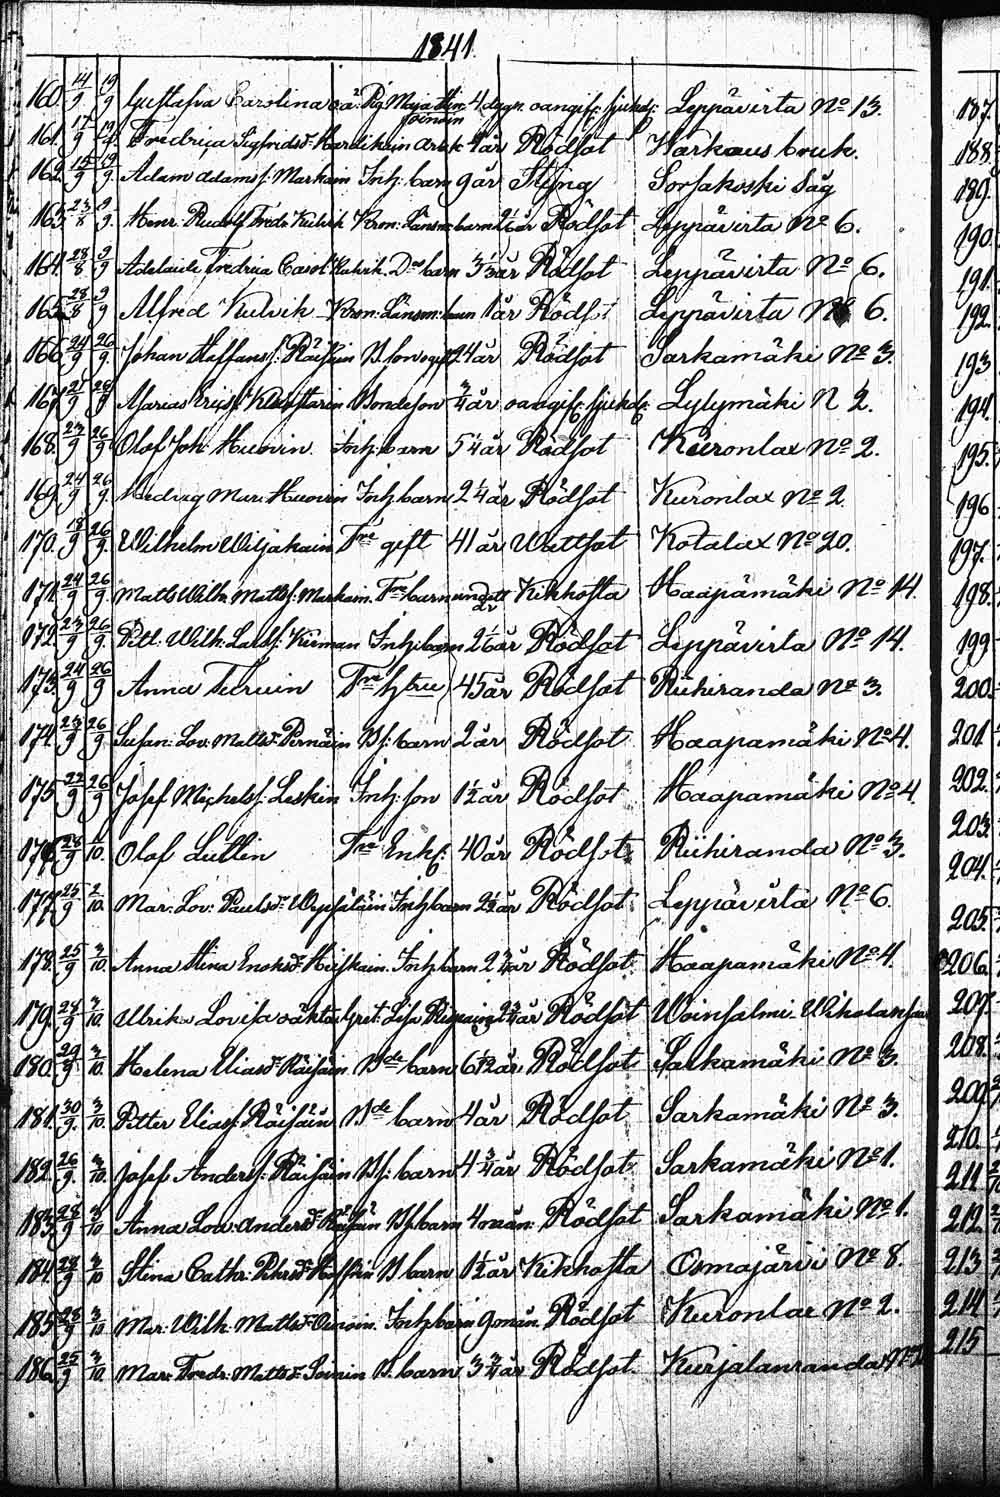 1841.
160. 14/9 19/9 Gustafva Carolina oä. Pig. Maja Stin 4 dygn oangif: sjukd: Leppävirta No 13.
161. 17/9 19/9 Fredrica Sigfridsdr Hardikain 4 år Rödsot Warkaus bruk.
162. 15/9 19/9 Adam Adamss: Markain Inh: barn 9 år Styng Sorsakoski Såg
163. 23/8 9/9 Henr. Rudolf Fredr Kulvik Kron: Länsm: barn 2 år Rödsot Leppävirta No 6.
164. 28/8 9/9 Adelaide Fredrica Carol: Kulvik Do barn 3 1/3 år Rödsot Leppävirta No 6.
165. 28/8 9/9 Alfred Kulvik Kron: Länsm: barn 1 år Röds: Leppävirta No 6.
166. 24/9 26/9 Johan Staffanss: Räisäin B. son ogift 24 år Rödsot Sarkamäki No 3.
167. 21/9 26/9 Ericss: Bondeson 3/4 år oangif: sjukd: Lylymäki N 2.
168. 23/9 26/9 Olof Joh: Huovin Inh: barn 5 1/4 år Rödsot Kuronlax No 2.
169. 24/9 26/9 Hedvig Mar: Huovin Inh: barn 2 1/4 år Rödsot Kuronlax No 2
170. 18/9 26/9 Wilhelm Wiljakain Tne gift 41 år Wattsot Kotalax No 20.
171. 24/9 26/9 Matts Wilh: Mattss: Markain. Tne barn Kikhosta Haapamäki No 14.
172. 23/9 26/9 Pett. Wilh. Larss: Kinnan Inh: barn 2 1/6 år Rödsot Leppävirta No 14.
173. 24/9 26/9 Anna Tiruin Tne hstru 45 år Rödsot Riihiranda No 3.
174. 23/9 26/9 Susan: Lov: Mattsdr Pernäin Bs: barn 2 år Rödsot Haapamäki No 4.
175. 22/9 26/9 Josef Michelss: Leskin Inh: son 1 1/2 år Rödsot Haapamäki No 4.
176. 28/9 1/10. Olof Luttin Tne Enkl: 40 år Rödsot Riihiranda No 3.
177. 25/9 2/10. Mar: Lov: Paulsdr Wepsäläin Inh: barn 2 1/2 år Rödsot Leppävirta No 6.
178. 25/9 3/10. Anna Stina Enoksdr Heiskain. Inh: barn 2 3/4 år Rödsot Haapamäki No 4.
179. 24/9 3/10. Ulrika Lovisa oäkta Gret: Lisa 2 3/4 år Rödsot Woinsalmi
180. 29/9 3/10. Helena Eliasdr Räisäin Bde barn 6 år Rödsot Sarkamäki No 3.
181. 30/9. 3/10. Petter Eliass: Räisäin Bde barn 4 år Rödsot Sarkamäki No 3.
182. 26/9. 3/10. Josef Anderss: Räisäin Bs: barn 4 3/4 år Rödsot Sarkamäki No 1.
183. 28/9 3/10 Anna Lov: Andersdr Räisäin Bs. barn 4 mån: Rödsot Sarkamäki No 1.
184. 28/9 3/10 Stina Cathr: Petersdr B. barn 1 1/2 år Kikhosta Osmajärvi No 8.
185. 28/9 3/10 Mar: Wilh. Mattsdr Inh: barn 9 mån. Rödsot Kuronlax No 2.
186. 25/9 3/10. Mar: Fredr: Mattsdr Soinin B. barn 3 3/4 år Rödsot Kurjalanranda
187.
188.
189.
190.
191.
192.
193
194.
195.
196
197.
198.
199
200.
201
202.
203.
204.
205.
206.
207.
208.
209.
210.
211
212.
213
214
215